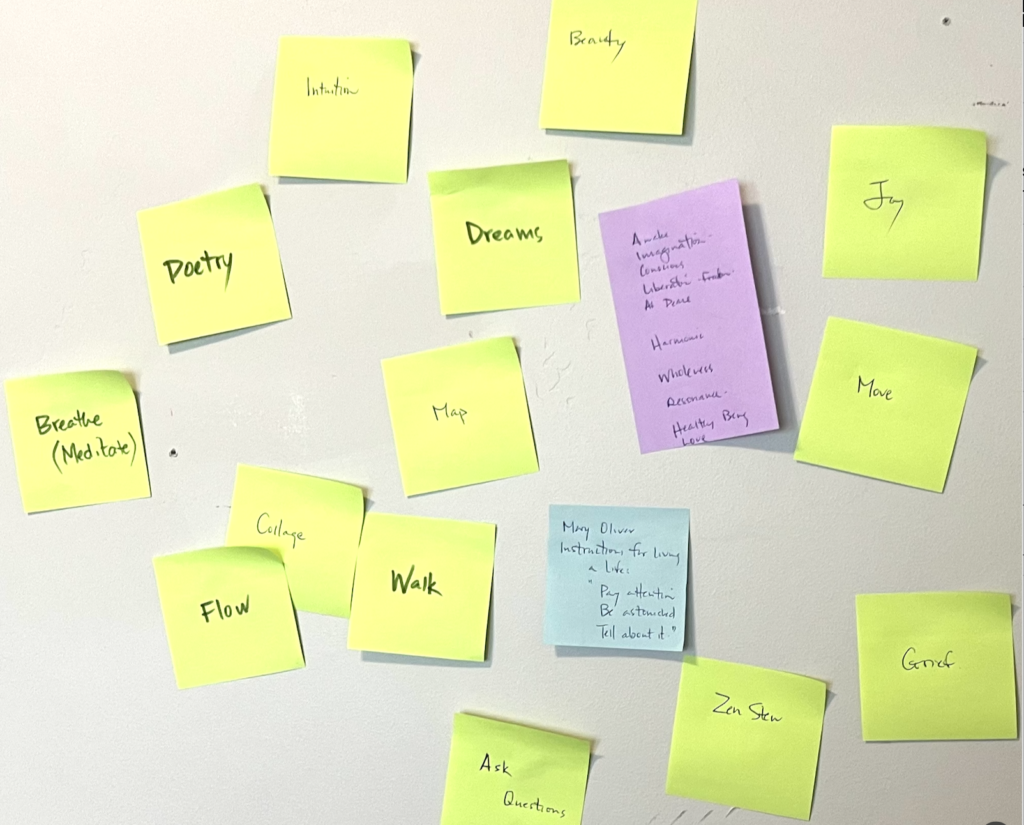 Beauty
Intuition
Joy
Dreams
Poetry
Awake
Imagination
Conscious
Liberation - Freedom
As Peace
Harmonic
Wholeness
Resonance
Healthy Being
Love
Map
Move
Breathe
(Meditate)
Collage
Walk
Flow
Mary Oliver
Instructions for living
a life:
"Pay attention
Be astonished
Tell about it."
Grief
Zen Stew
Ask
Questions